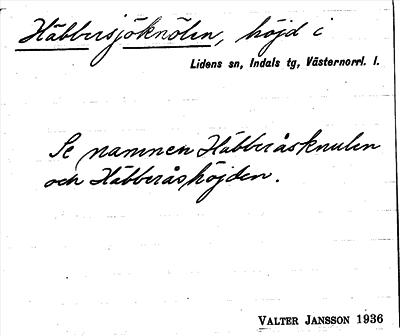 Häbbersjöknölen, höjd i
Lidens sn, Indals tg, Västernorrl. l.
Se namnen Häbberåsknulen
och Häbberåshöjden.
VALTER JANSSON 1936